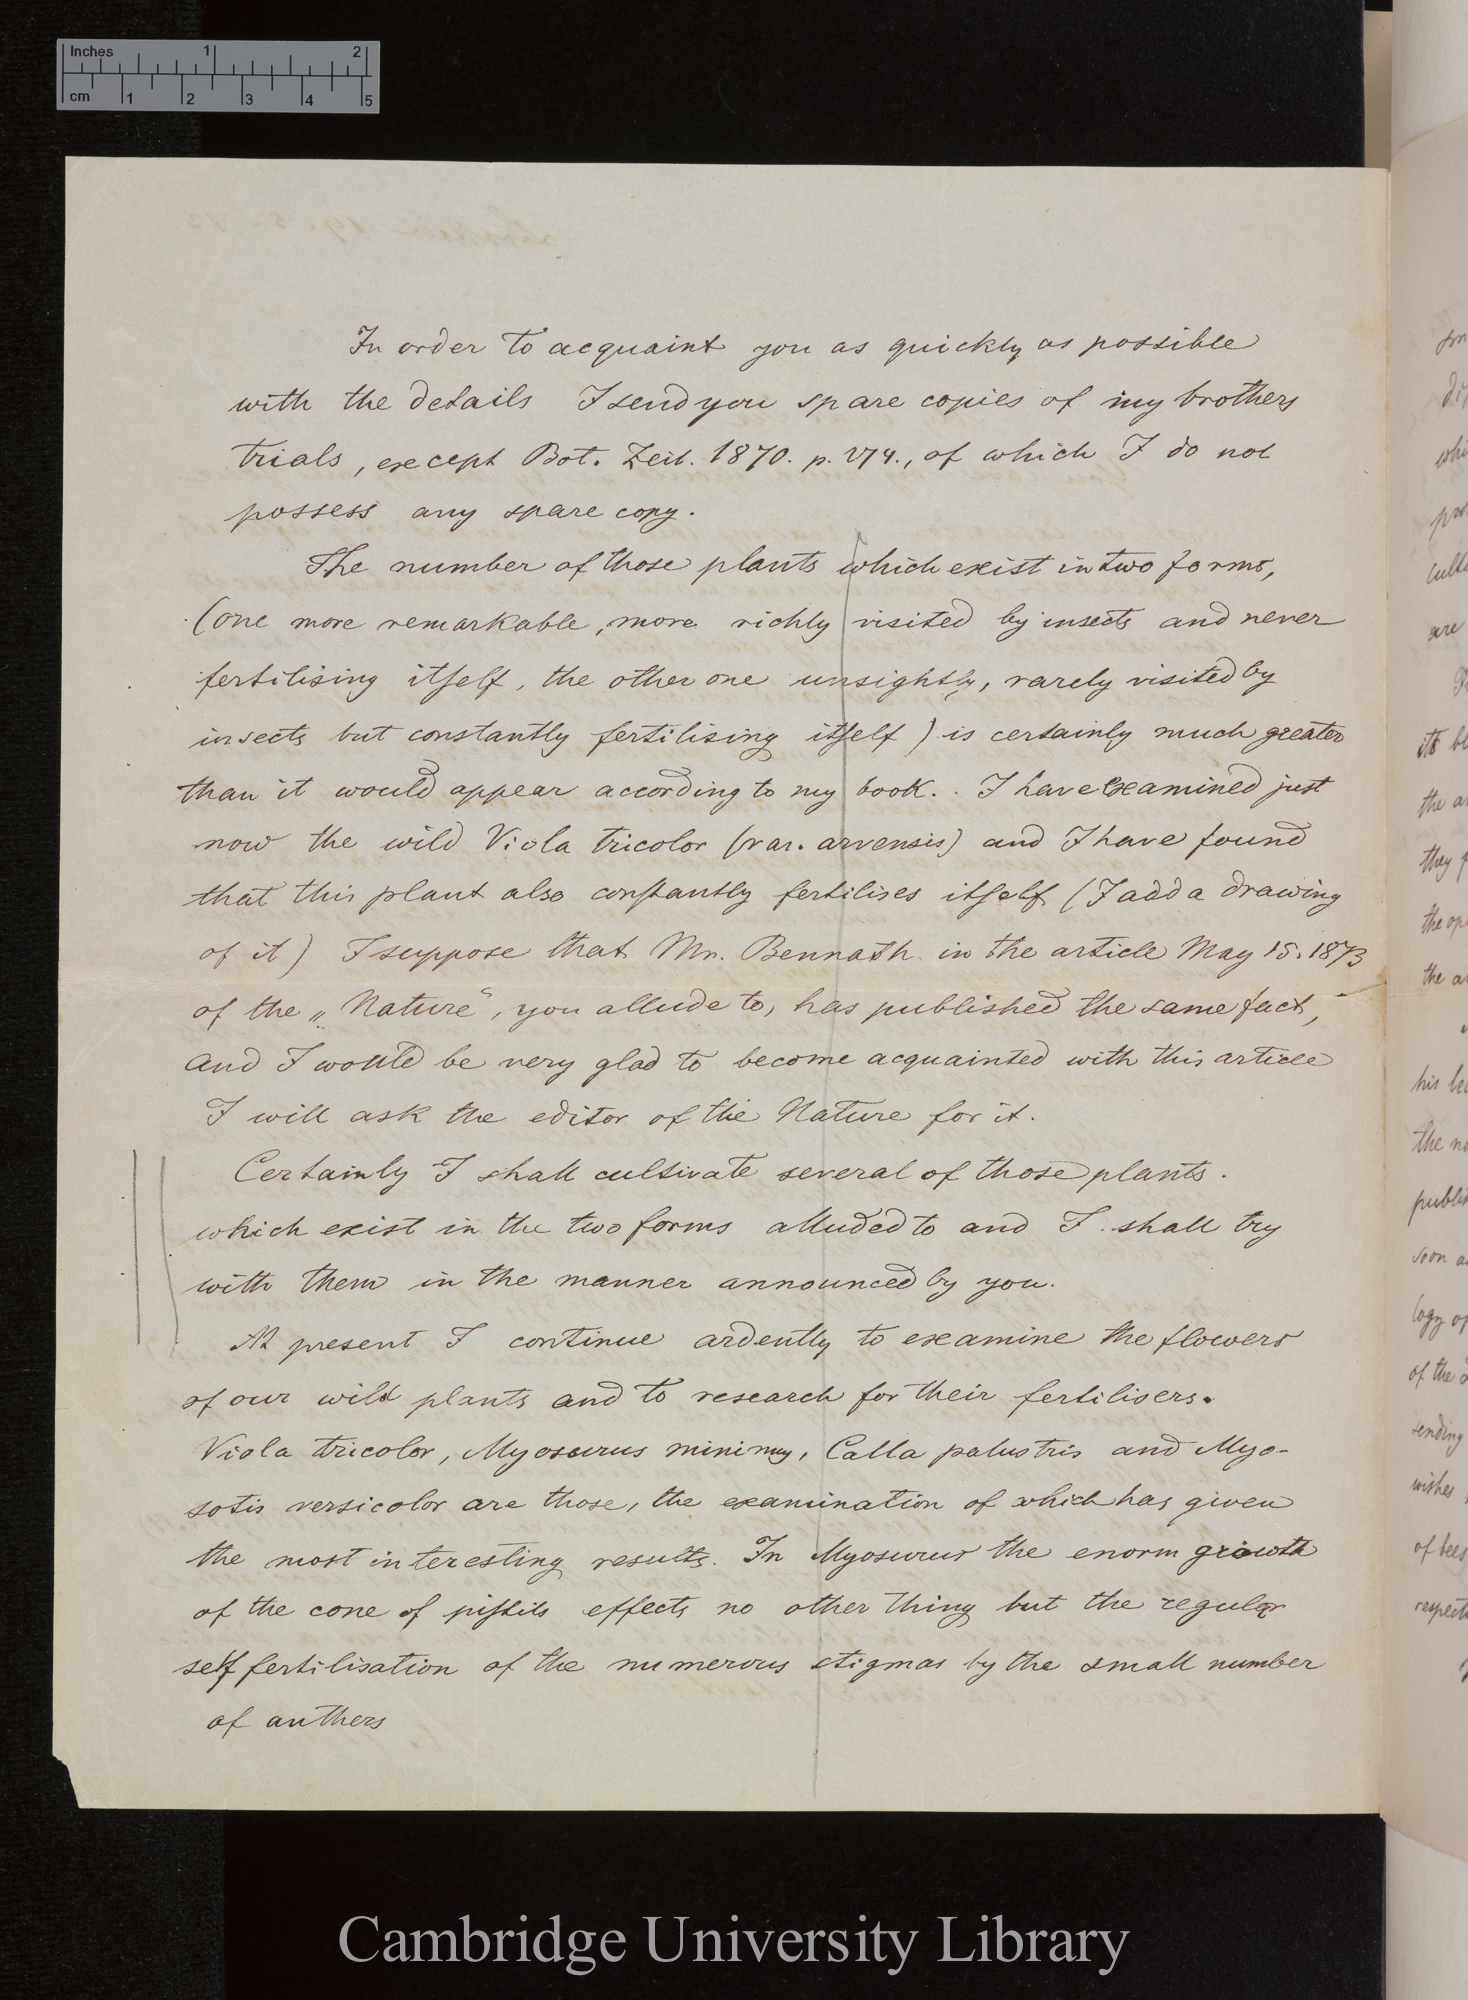 Inches 1 2
cm 1 2 3 4 5
In order to acquaint you as quickly as possible
with the details I send you spare copies of my brothers
trials, except Bot. Zeit. 1870. p. 274., of which I do not
possess any spare copy.
The number of those plants which exist in two forms,
(one more remarkable, more richly visited by insects and never
fertilising itself, the other one unsightly, rarely visited by
insects but constantly fertilising itself) is certainly much greater
than it would appear according to my book. I have examined just
now the wild Viola tricolor (var. arvensis) and I have found
that this plant also constantly fertilises itself (I add a drawing
of it) I suppose that Mr. Bennath in the article May 15. 1873
of the „Nature“, you allude to, has published the same fact,
and I would be very glad to become acquainted with this article
I will ask the editor of the Nature for it.
Certainly I shall cultivate several of those plants.
which exist in the two forms alluded to and I shall try
with them in the manner announced by you.
At present I continue ardently to examine the flowers
of our wild plants and to research for their fertilisers.
Viola tricolor, Myosurus minimus, Calla palustris and Myo-
sotis versicolor are those, the examination of which has given
the most interesting results. In Myosurus the enorm growth
of the cone of pistils effects no other thing but the regular
self fertilisation of the numerous stigmas by the small number
of anthers
Cambridge University Library